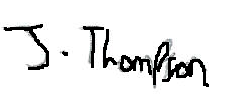 J. Thompson